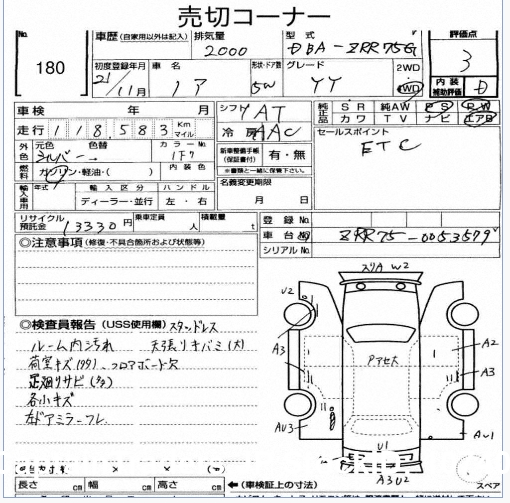 売切コーナー
No. 180
車歴 (自家用以外は記入)
排気量 2000
型式 DBA-ZRR75G
評価点 3
初度登録年月 21年 11月
車名 ノア
形状・ドア数 5W
グレード YY
2WD
4WD
内装補助評価 D
車検 年 月
シフト 7AT
純正品 SR 純AW PS PW
カワ TV ナビ エアB
走行 118,583 Km マイル
冷房 AAC
セールスポイント
ETC
外色 元色 シルバー → 色替
カラーNo. 1F7
新車整備手帳 (保証書付) 有・無
※書類と一緒に保管下さい
燃料 ガソリン・軽油・( )
内装色
名義変更期限 月 日
輸入車用 年式 輸入区分 ハンドル
ディーラー・並行 左・右
リサイクル預託金 13330円
乗車定員 人
積載量 t
登録No.
車台No. ZRR75-0053579
シリアルNo.
◎注意事項 (修復・不具合箇所および状態等)
スリA W2
◎検査員報告 (USS使用欄) スタッドレス
ルーム内汚れ 天張りキバミ(大)
荷室キズ(タタ)、フロアボード欠
足廻りサビ(タタ)
各小キズ
左ドアミラーフレ
U2
A3
AU3
Pアセ大
A2
A3
AU1
U1
A3U2
スペア
長さ cm 幅 cm 高さ cm
←(車検証上の寸法)